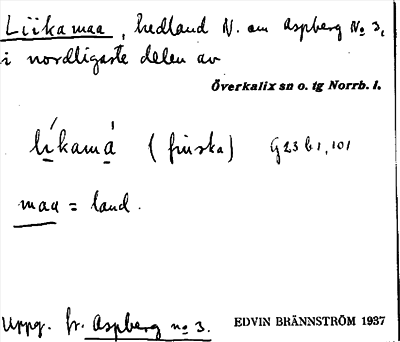 Liikamaa, hedland N. om Aspberg No 3,
i nordligaste delen av
Överkalix sn o. tg Norrb. l.
líkamá (finska) G23b1,101
maa = land.
Uppg. fr. Aspberg no 3. EDVIN BRÄNNSTRÖM 1937